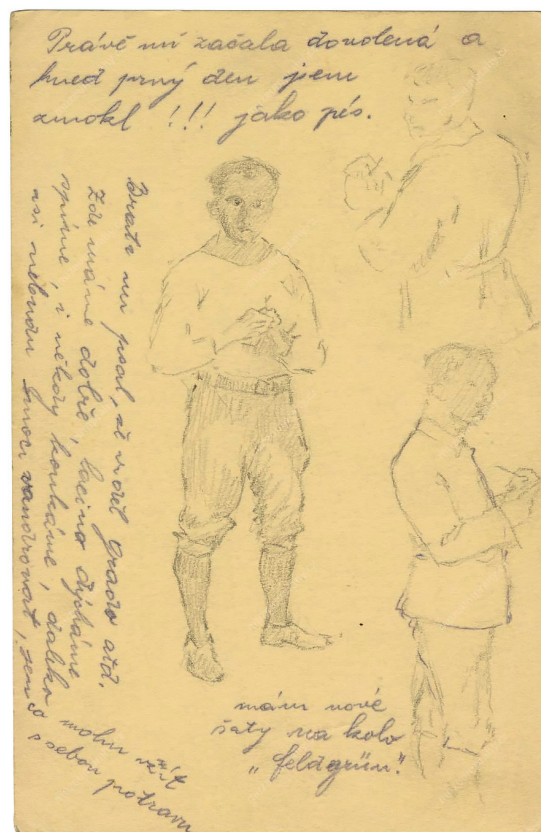 Právě mi začala dovolená a
hned prvý den jsem
zmokl !!! jako pes.
Bratr mi psal, že viděl Grado atd.
Zde máme dobře, lacino dýcháme
spíme, i někdy koukáme, daleko
asi nebudu smoci vandrovat, jen co mohu vzít
s sebou potravu
mám nové
šaty na kolo
„feldgrün".